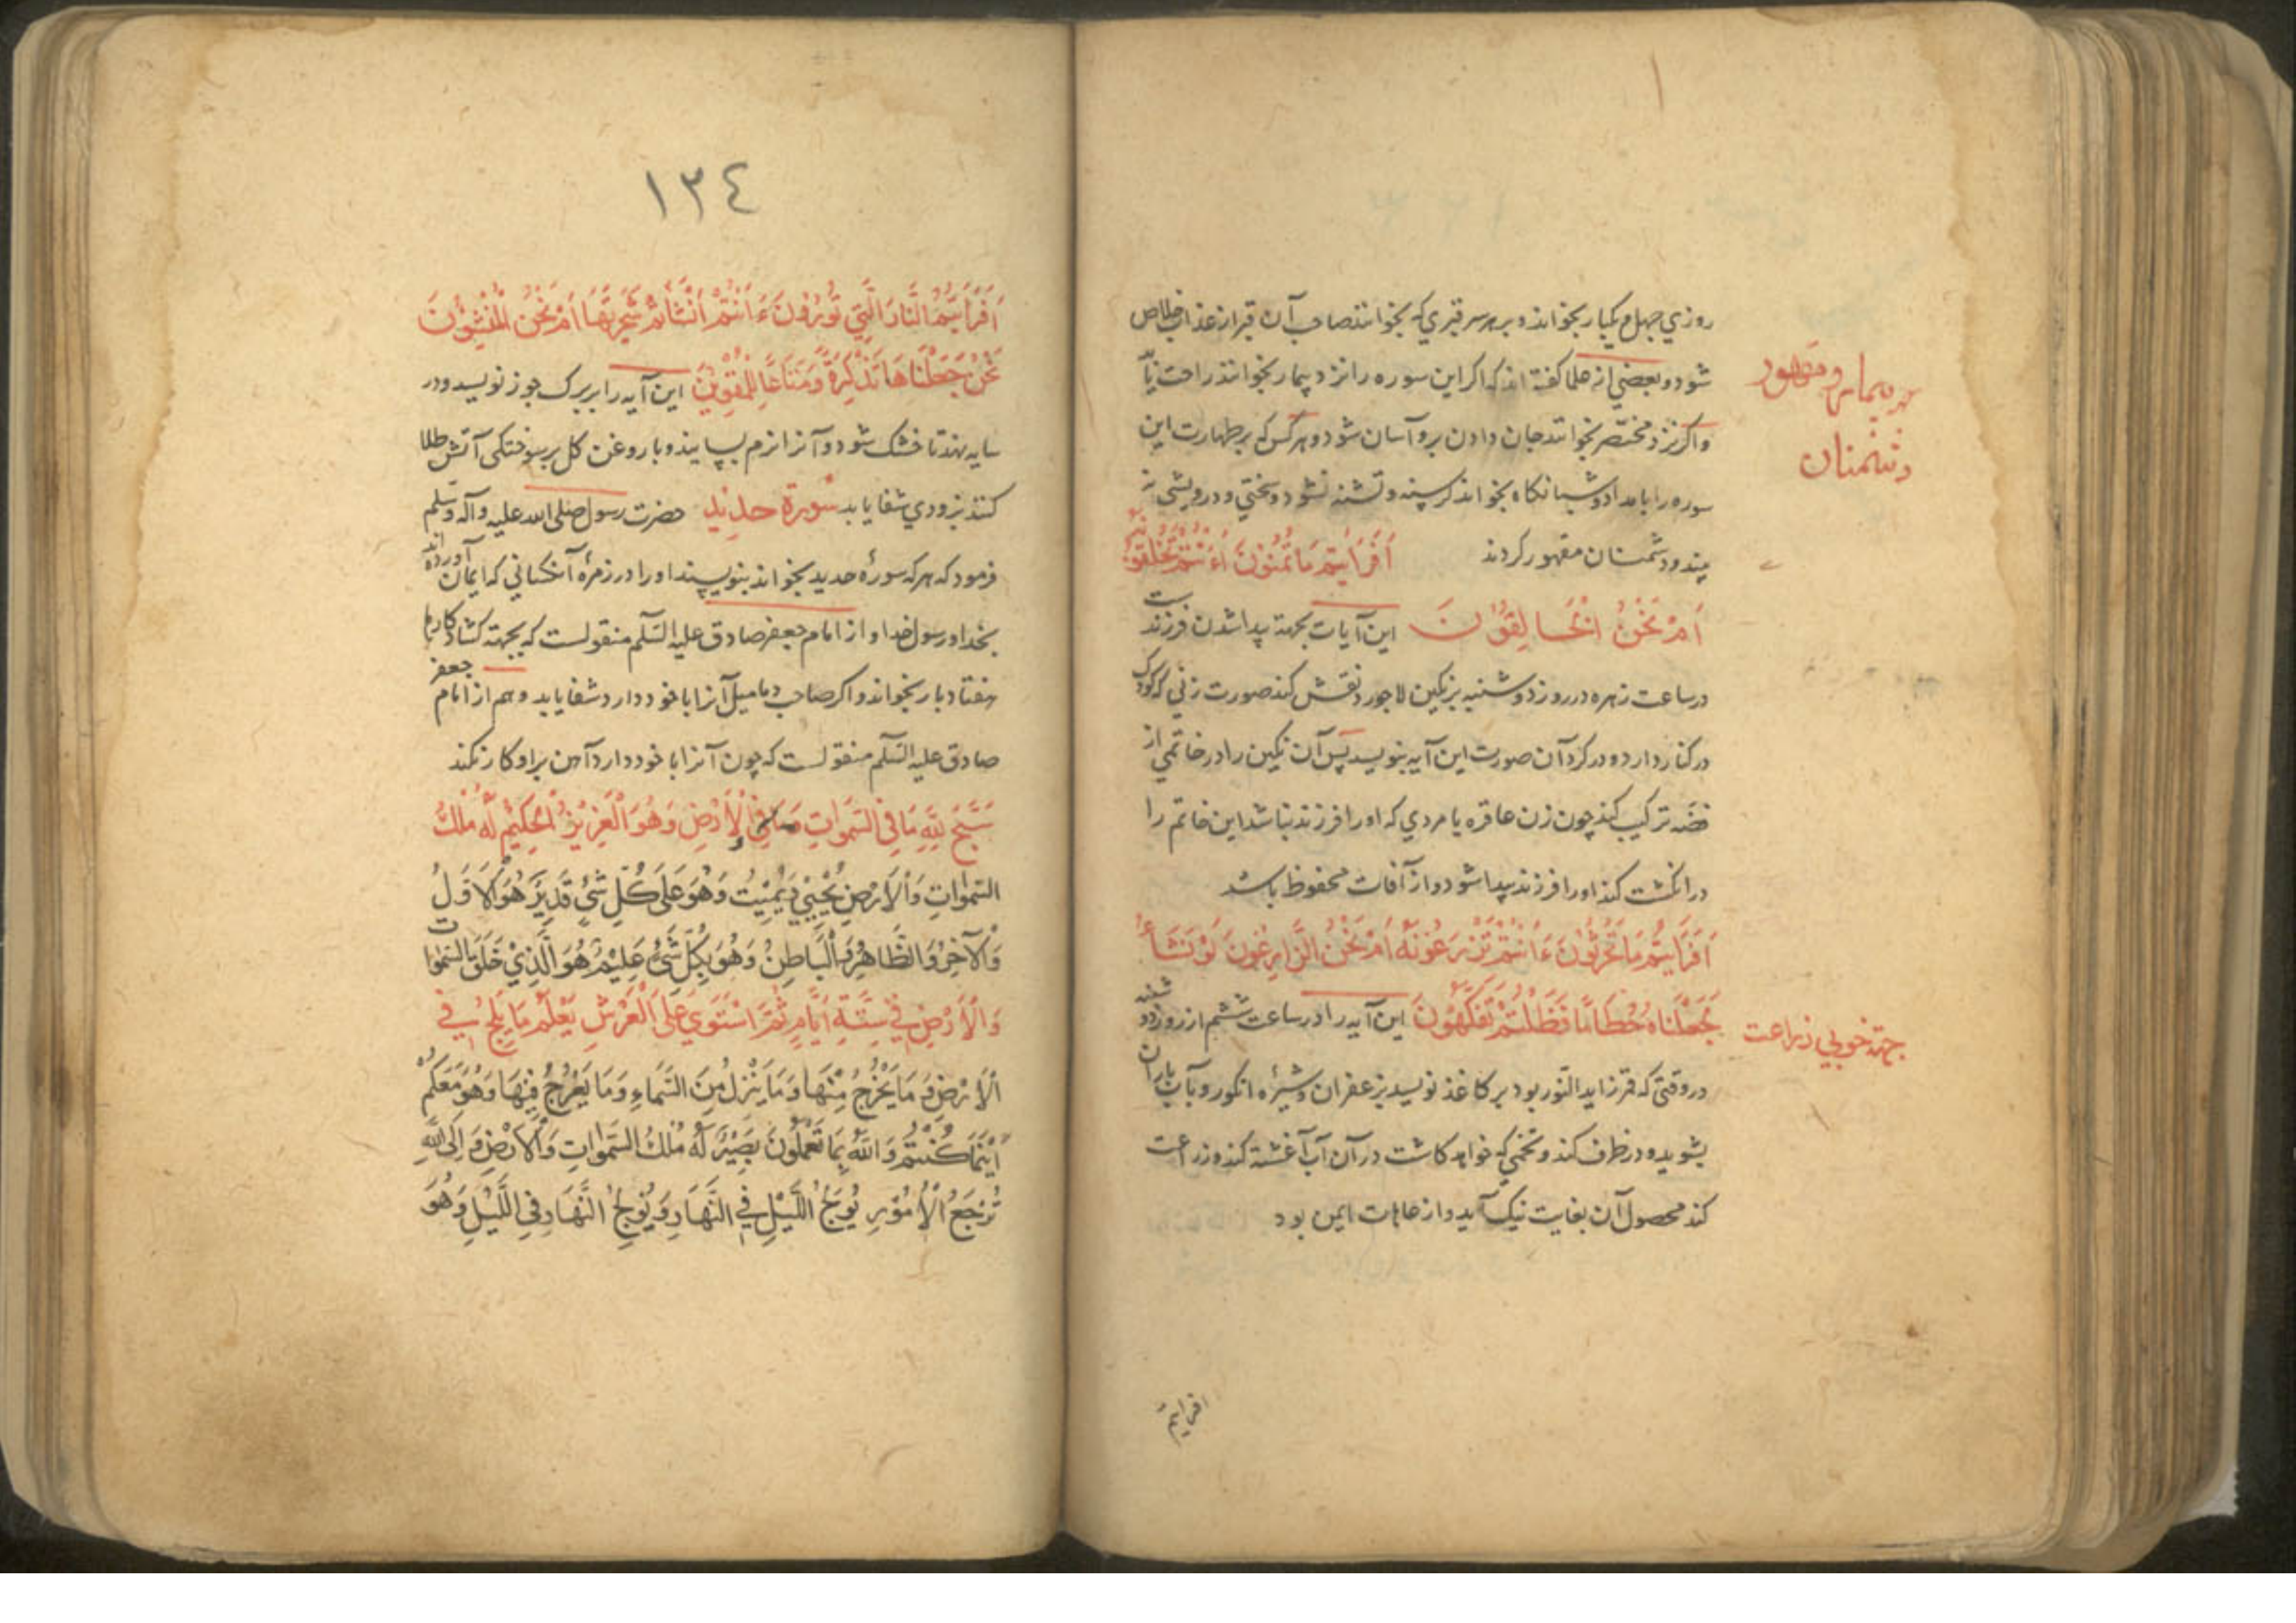 روزي جهل و یکبار بخواند و بر هر سر قبري که بخوانند صاحب آن قبر از عذاب خلاص
شود و بعضي از علما کفته اند که اکر این سوره را نزد بیمار بخوانند راحت یابد
واکر نزد محتضر بخوانند جان دادن برو آسان شود و هر کس که بر طهارت این
سوره را بامداد و شبانکاه بخواند کرسنه و تشنه نشود و سختي و درویشي نه
بر بیمار و مقهور
دشمنان
بیند و دشمنان مقهور کردند اَفَرَاَيْتُمْ مَا تُمْنُونَ ءَاَنْتُمْ تَخْلُقُونَهُ
اَمْ نَحْنُ الْخَالِقُونَ این آیات بجهة پیدا شدن فرزندست
در ساعت زهره در روز دوشنبه بر نکین لاجورد نقش کند صورت زني که کودک
در کنار دارد و در کرد آن صورت این آیه بنویسد پس آن نکین را در خاتمي از
فضّه ترکیب کند چون زن عاقره یا مردي که او را فرزند نباشد این خاتم را
در انکشت کند او را فرزند پیدا شود و از آفات محفوظ باشد
اَفَرَاَيْتُمْ مَا تَحْرُثُونَ ءَاَنْتُمْ تَزْرَعُونَهُ اَمْ نَحْنُ الزَّارِعُونَ لَوْ نَشَاءُ
لَجَعَلْنَاهُ حُطَامًا فَظَلْتُمْ تَفَكَّهُونَ این آیه را در ساعت ششم از روز دوشنبه
جهة خوبي زراعت
در وقتي که قمر زاید النّور بود بر کاغذ نویسد بزعفران و شیرهٔ انکور و بآب باران
بشوید و در ظرف کند و تخمي که خواهد کاشت در آن آب آغشته کند و زراعت
کند محصول آن بغایت نیک آید و از عاهات ایمن بود
افرایتم
١٣٤
اَفَرَاَيْتُمُ النَّارَ الَّتِي تُورُونَ ءَاَنْتُمْ اَنْشَأْتُمْ شَجَرَتَهَا اَمْ نَحْنُ الْمُنْشِئُونَ
نَحْنُ جَعَلْنَاهَا تَذْكِرَةً وَمَتَاعًا لِلْمُقْوِينَ این آیه را بر برک جوز نویسد و در
سایه نهند تا خشک شود و آنرا نرم بساید و با روغن کل بر سوختکی آتش طلا
کنند بزودي شفا یابد سُورَة حدید حضرت رسول صلی الله علیه وآله وسلم
فرمود که هر که سورهٔ حدید بخواند بنویسند او را در زمرهٔ آنکساني که ایمان آورده اند
بخدا و رسول خدا و از امام جعفر صادق علیه السّلم منقولست که بجهة کشاد کارها
هفتاد بار بخواند و اکر صاحب دمامیل آنرا با خود دارد شفا یابد و هم از امام جعفر
صادق علیه السّلم منقولست که چون آنرا با خود دارد آهن بر او کار نکند
سَبَّحَ لِلَّهِ مَا فِي السَّمَوَاتِ وَمَا فِي الْاَرْضِ وَهُوَ الْعَزِيزُ الْحَكِيمُ لَهُ مُلْكُ
السَّمَوَاتِ وَالْاَرْضِ يُحْيِي وَيُمِيتُ وَهُوَ عَلَى كُلِّ شَيْءٍ قَدِيرٌ هُوَ الْاَوَّلُ
وَالْآخِرُ وَالظَّاهِرُ وَالْبَاطِنُ وَهُوَ بِكُلِّ شَيْءٍ عَلِيمٌ هُوَ الَّذِي خَلَقَ السَّمَوَاتِ
وَالْاَرْضَ فِي سِتَّةِ اَيَّامٍ ثُمَّ اسْتَوَى عَلَى الْعَرْشِ يَعْلَمُ مَا يَلِجُ فِي
الْاَرْضِ وَمَا يَخْرُجُ مِنْهَا وَمَا يَنْزِلُ مِنَ السَّمَاءِ وَمَا يَعْرُجُ فِيهَا وَهُوَ مَعَكُمْ
اَيْنَمَا كُنْتُمْ وَاللَّهُ بِمَا تَعْمَلُونَ بَصِيرٌ لَهُ مُلْكُ السَّمَوَاتِ وَالْاَرْضِ وَاِلَى اللَّهِ
تُرْجَعُ الْاُمُورُ يُولِجُ اللَّيْلَ فِي النَّهَارِ وَيُولِجُ النَّهَارَ فِي اللَّيْلِ وَهُوَ